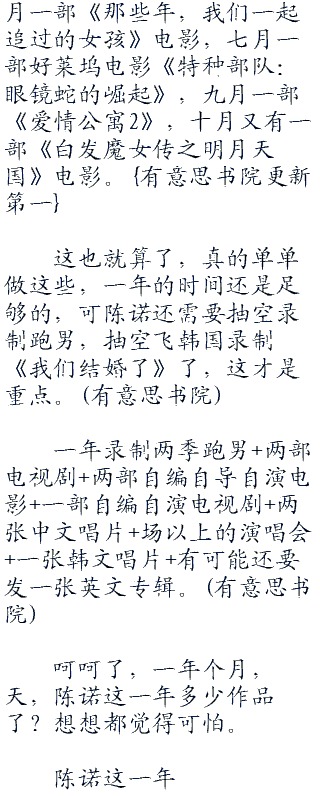 月一部《那些年，我们一起
追过的女孩》电影，七月一
部好莱坞电影《特种部队：
眼镜蛇的崛起》，九月一部
《爱情公寓2》，十月又有一
部《白发魔女传之明月天
国》电影。{有意思书院更新
第一}
这也就算了，真的单单
做这些，一年的时间还是足
够的，可陈诺还需要抽空录
制跑男，抽空飞韩国录制
《我们结婚了》了，这才是
重点。(有意思书院)
一年录制两季跑男+两部
电视剧+两部自编自导自演电
影+一部自编自演电视剧+两
张中文唱片+场以上的演唱会
+一张韩文唱片+有可能还要
发一张英文专辑。(有意思书
院)
呵呵了，一年个月，
天，陈诺这一年多少作品
了？想想都觉得可怕。
陈诺这一年